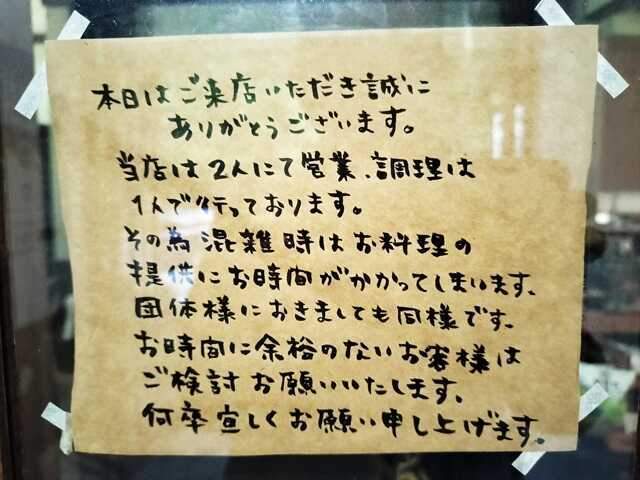 本日はご来店いただき誠に
ありがとうございます。
当店は2人にて営業、調理は
1人で行っております。
その為混雑時はお料理の
提供にお時間がかかってしまいます。
団体様におきましても同様です。
お時間に余裕のないお客様は
ご検討お願いいたします。
何卒宜しくお願い申し上げます。